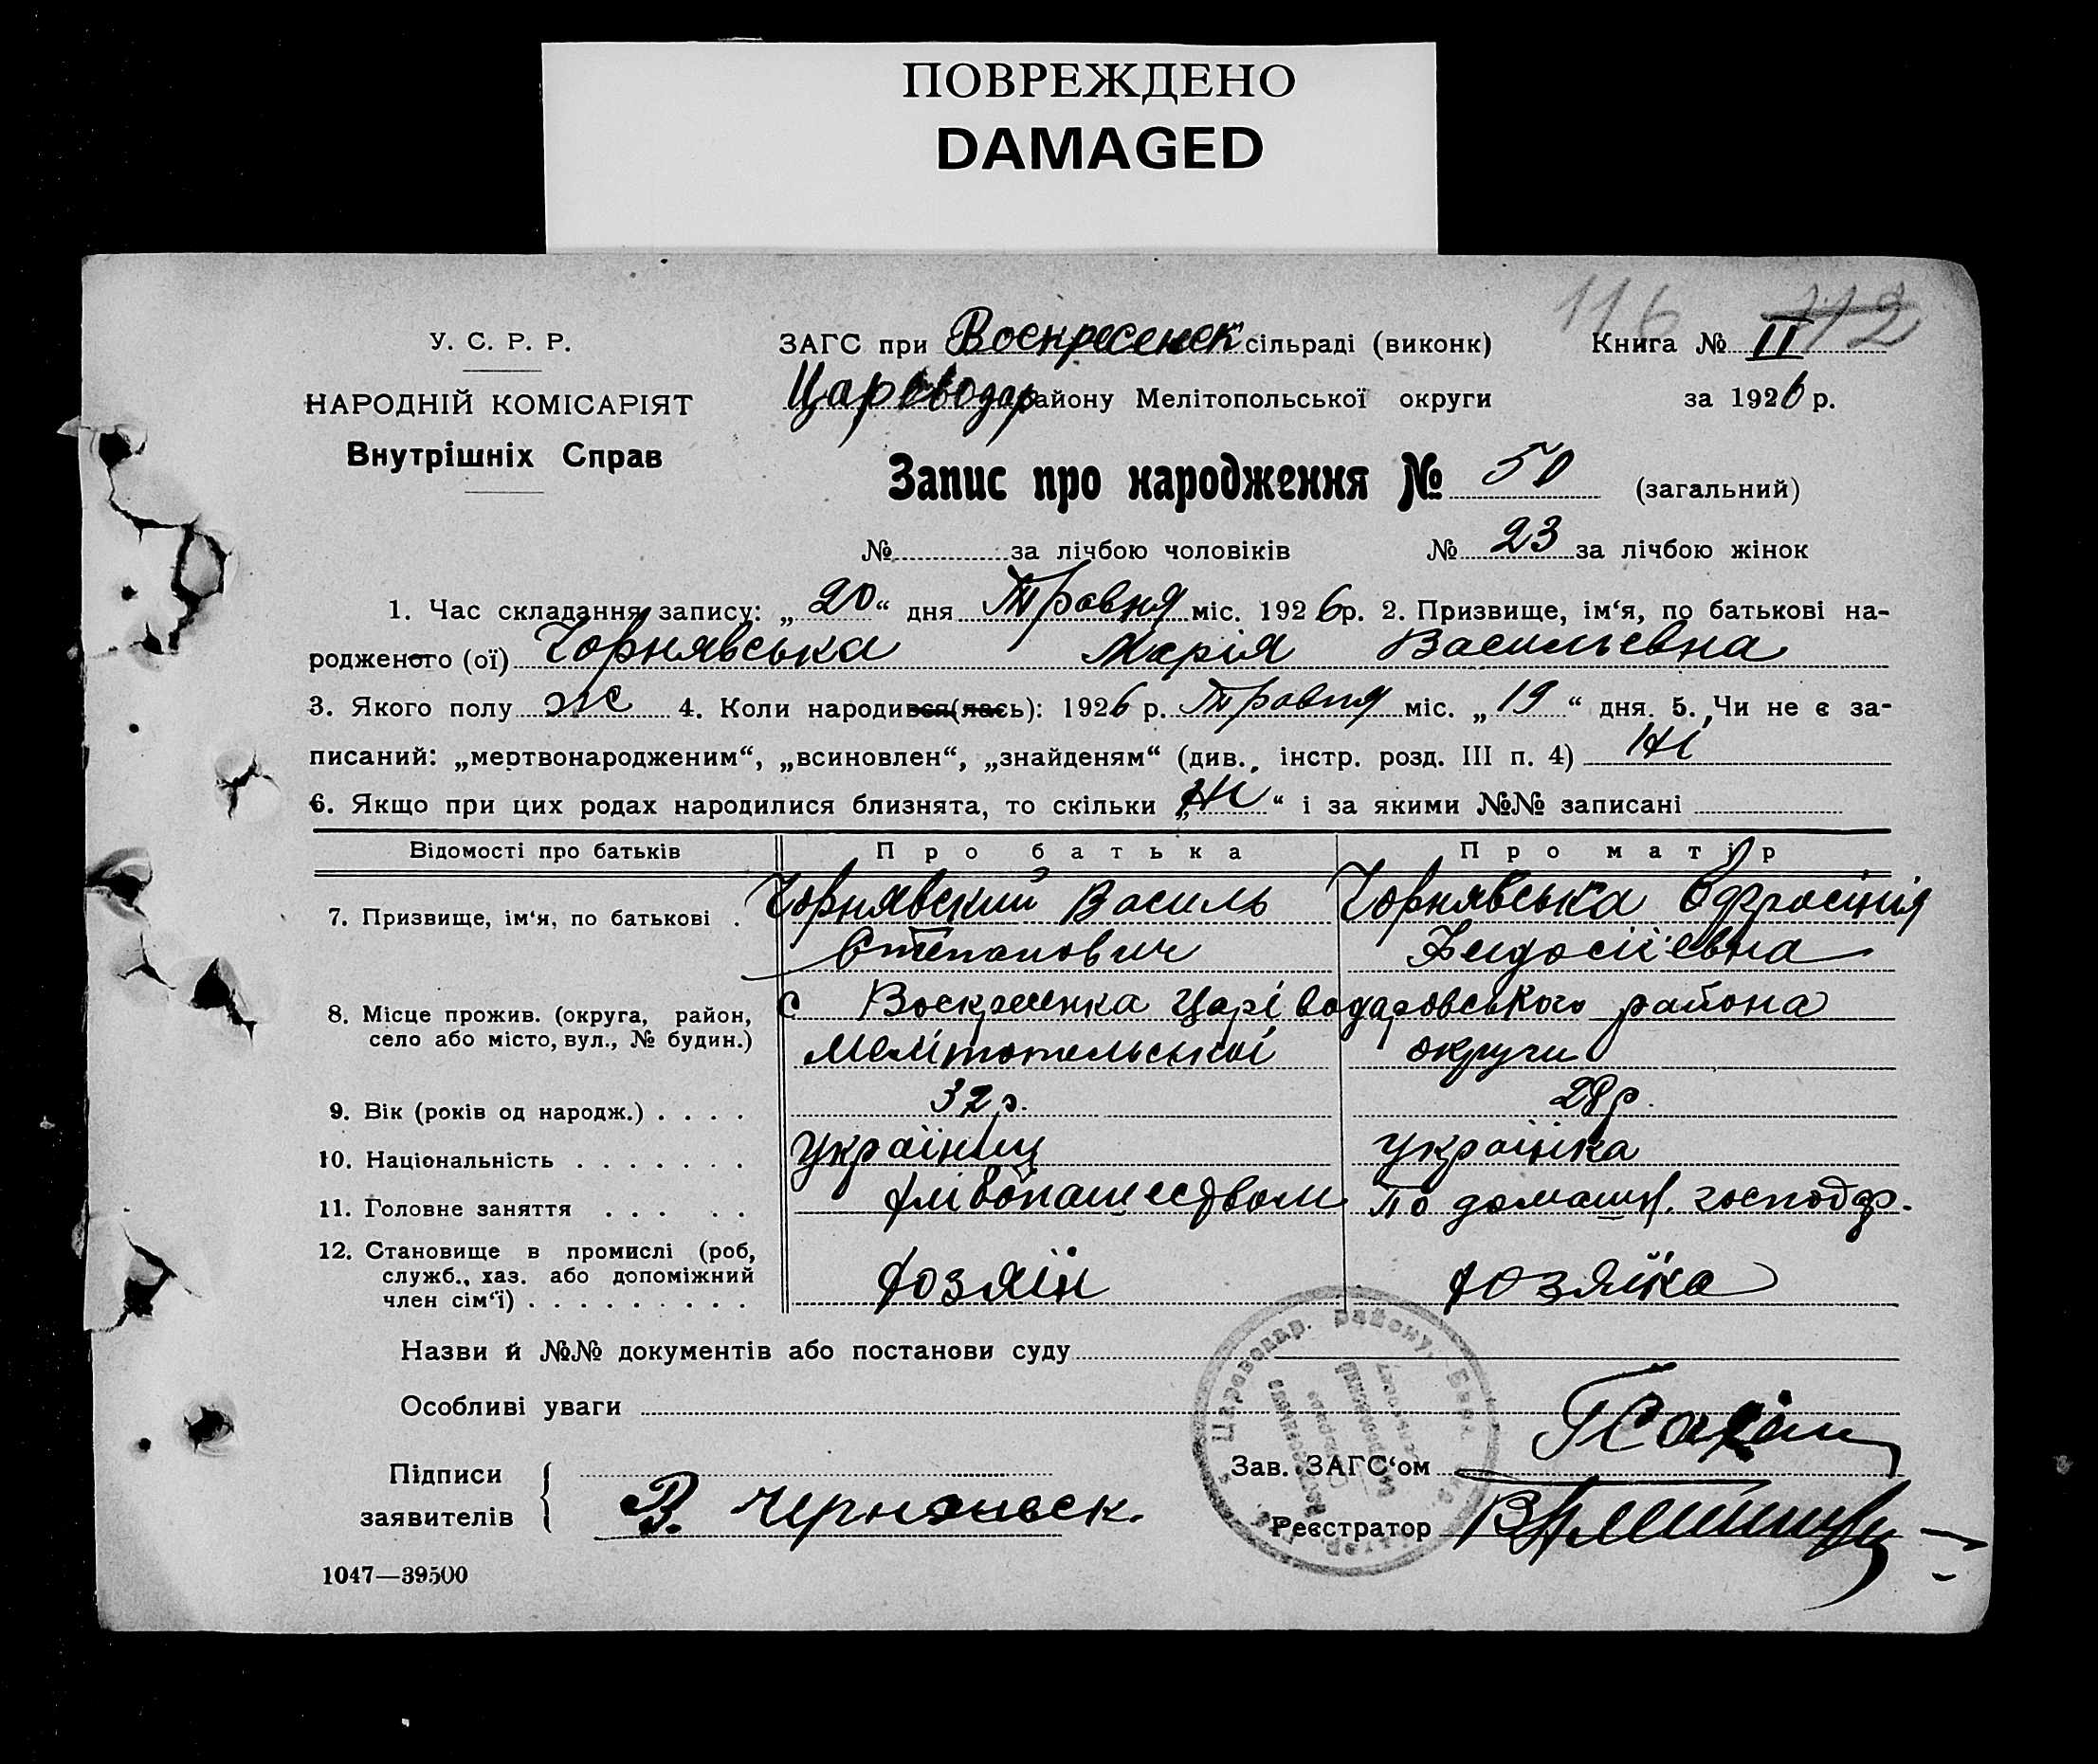 ПОВРЕЖДЕНО
DAMAGED
116 112
У. С. Р. Р.
НАРОДНІЙ КОМІСАРІЯТ
Внутрішніх Справ
ЗАГС при Воскресенск сільраді (виконк) Книга № II
Цареводар району Мелітопольської округи за 1926 р.
Запис про народження № 50 (загальний)
№ за лічбою чоловіків № 23 за лічбою жінок
1. Час складання запису: „20“ дня Травня міс. 1926 р. 2. Призвище, ім‘я, по батькові на-
родженого (ої) Чорнявська Марія Васильевна
3. Якого полу ж 4. Коли народився(лась): 1926 р. Травня міс. „19“ дня. 5. Чи не є за-
писаний: „мертвонародженим“, „всиновлен“, „знайденям“ (див., інстр. розд. III п. 4) Ні
6. Якщо при цих родах народилися близнята, то скільки „Ні“ і за якими №№ записані
Відомості про батьків Про батька Про матір
7. Призвище, ім‘я, по батькові . Чорнявский Василь Чорнявська Єфросінія
Степанович Федосіївна
8. Місце прожив. (округа, район, с Воскресенка Царіводаровського района
село або місто, вул., № будин.) Мелітопольської округи
9. Вік (років од народж.) . . . . 32 р. 28 р.
10. Національність . . . . . . . Українец Українка
11. Головне заняття . . . . . хлібопашеством По домашн. господар.
12. Становище в промислі (роб, хозяїн хозяйка
служб., хаз. або допоміжний
член сім‘ї) . . . . . . . . .
Назви й №№ документів або постанови суду
Особливі уваги
Царевовар. Району
Підписи
заявителів В. Чернявск.
Зав. ЗАГС‘ом
Реєстратор
1047—39500